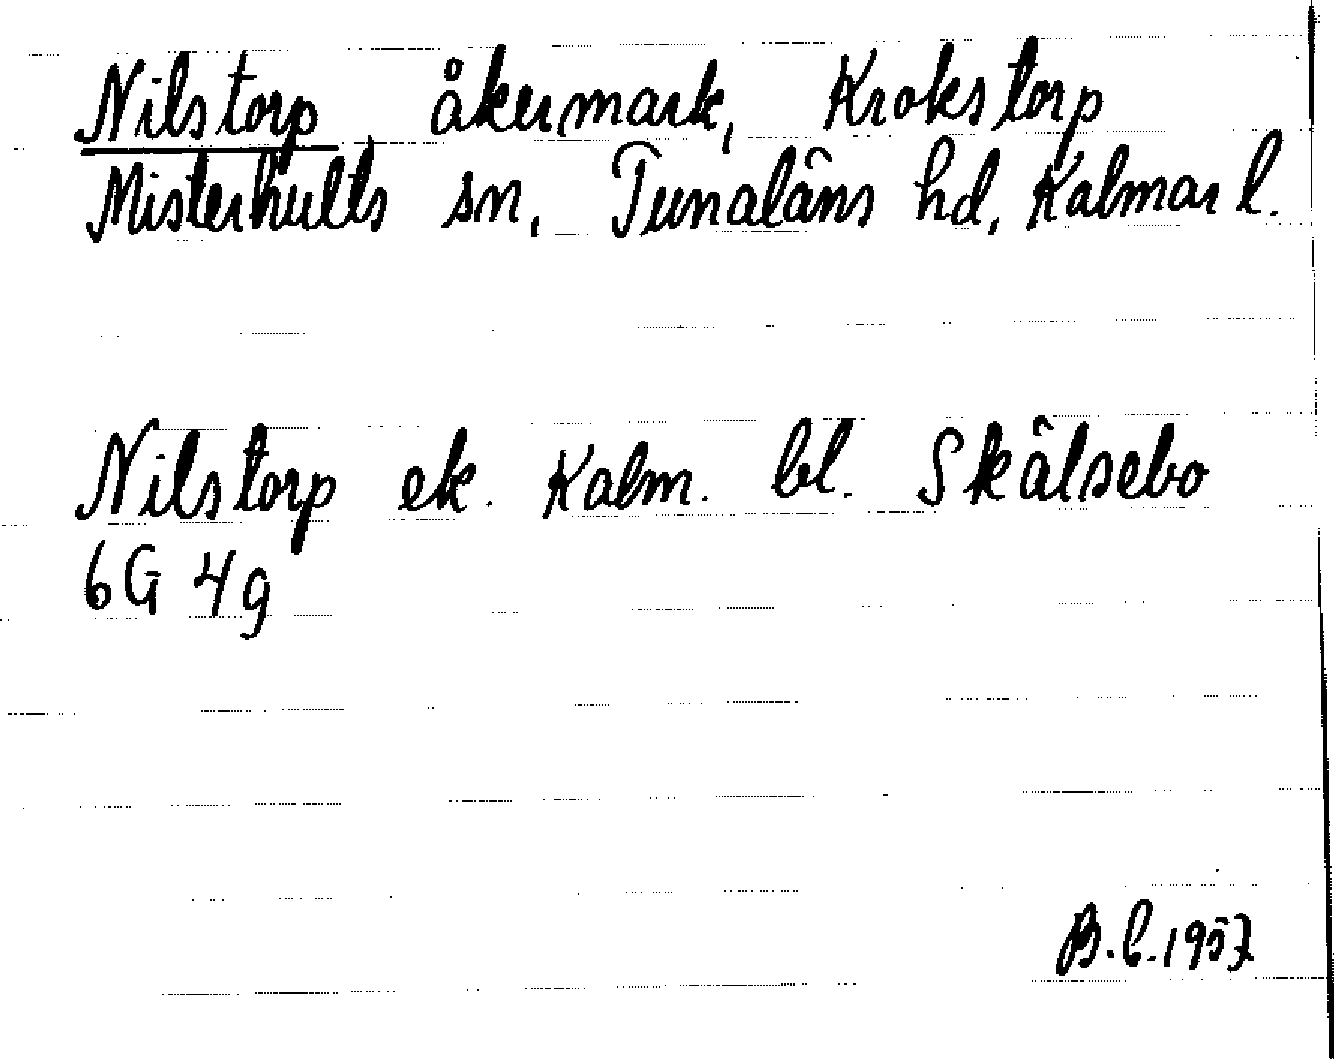 Nilstorp åkermark, Krokstorp
Misterhults sn, Tunaläns hd, Kalmar l.
Nilstorp ek. Kalm. bl. Skälsebo
6G 4g
B.L.1957